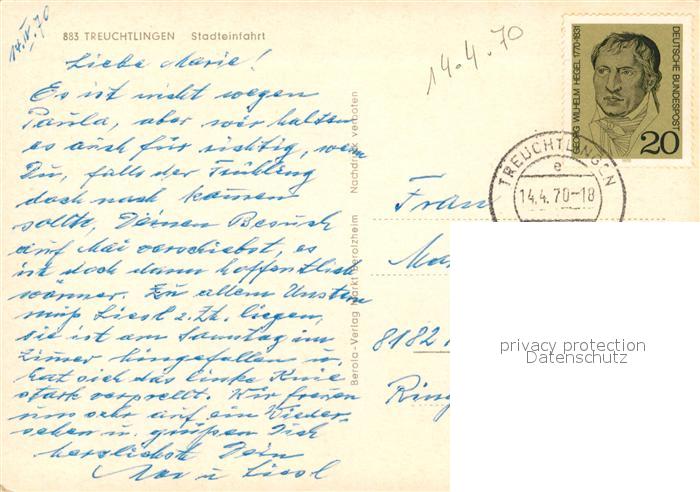 14.IV.70
883 TREUCHTLINGEN Stadteinfahrt
Liebe Marie!
Es ist nicht wegen
Paula, aber wir halten
es auch für richtig, wenn
Du, falls der Frühling
doch noch kommen
sollte, Deinen Besuch
auf Mai verschiebst, es
ist doch dann hoffentlich
wärmer. Zu allem Unstern
muß Liesl z. Zt. liegen,
sie ist am Samstag im
Zimer hingefallen u.
hat sich das linke Knie
stark verprellt. Wir freuen
uns sehr auf ein Wieder-
sehen u. grüßen Dich
herzlichst Dein
Max u Liesl
Berola-Verlag Markt Berolzheim Nachdruck verboten
14.4.70
GEORG WILHELM HEGEL 1770-1831
DEUTSCHE BUNDESPOST
20
TREUCHTLINGEN
e
14.4.70-18
Frau
8182
privacy protection
Datenschutz